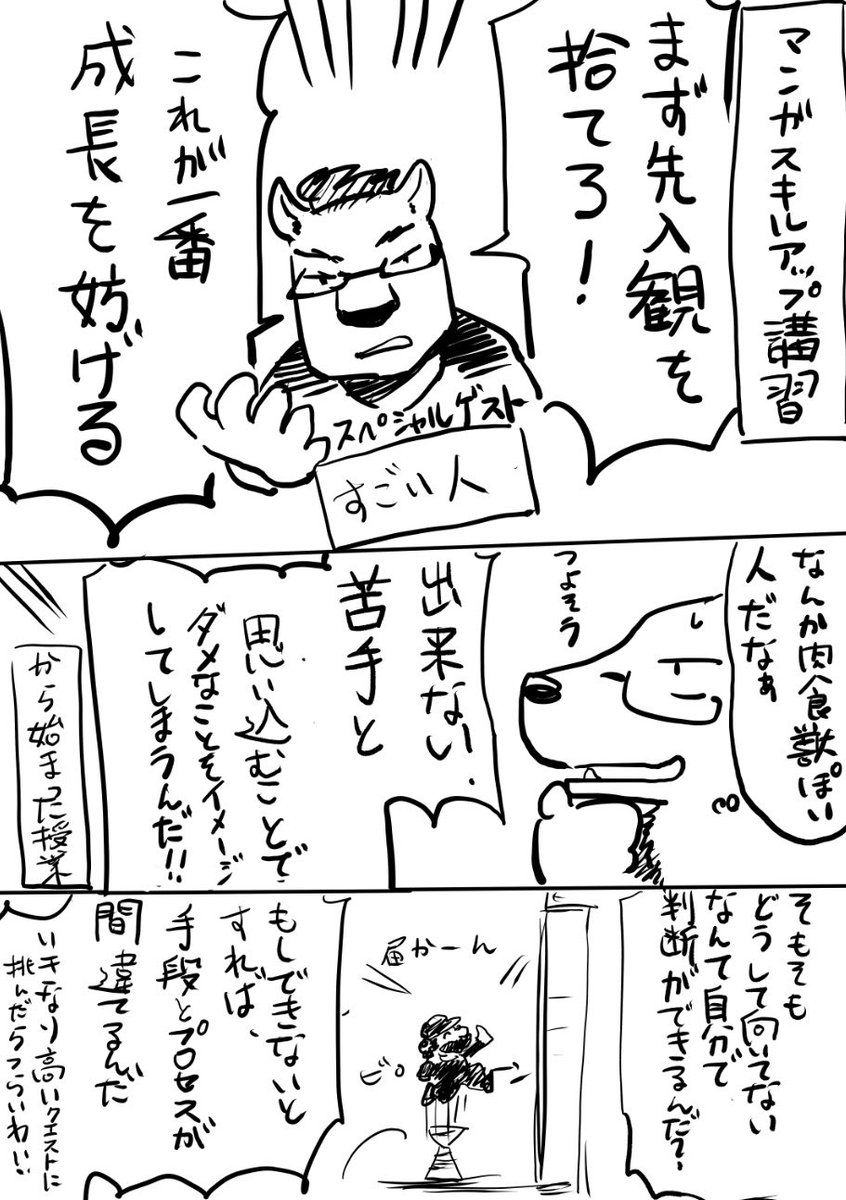 マンガスキルアップ講習
まず先入観を
捨てろ!
これが一番
成長を妨げる
スペシャルゲスト
すごい人
なんか肉食獣ぽい
人だなぁ
つよそう
出来ない
苦手と
思い込むことで
ダメなことをイメージ
してしまうんだ!!
から始まった授業
そもそも
どうして向いてない
なんて自分で
判断ができるんだ?
届かーん
ピョ
もしできないと
すれば、
手段とプロセスが
間違てるんだ
いきなり高いクエストに
挑んだらつらいわい!!